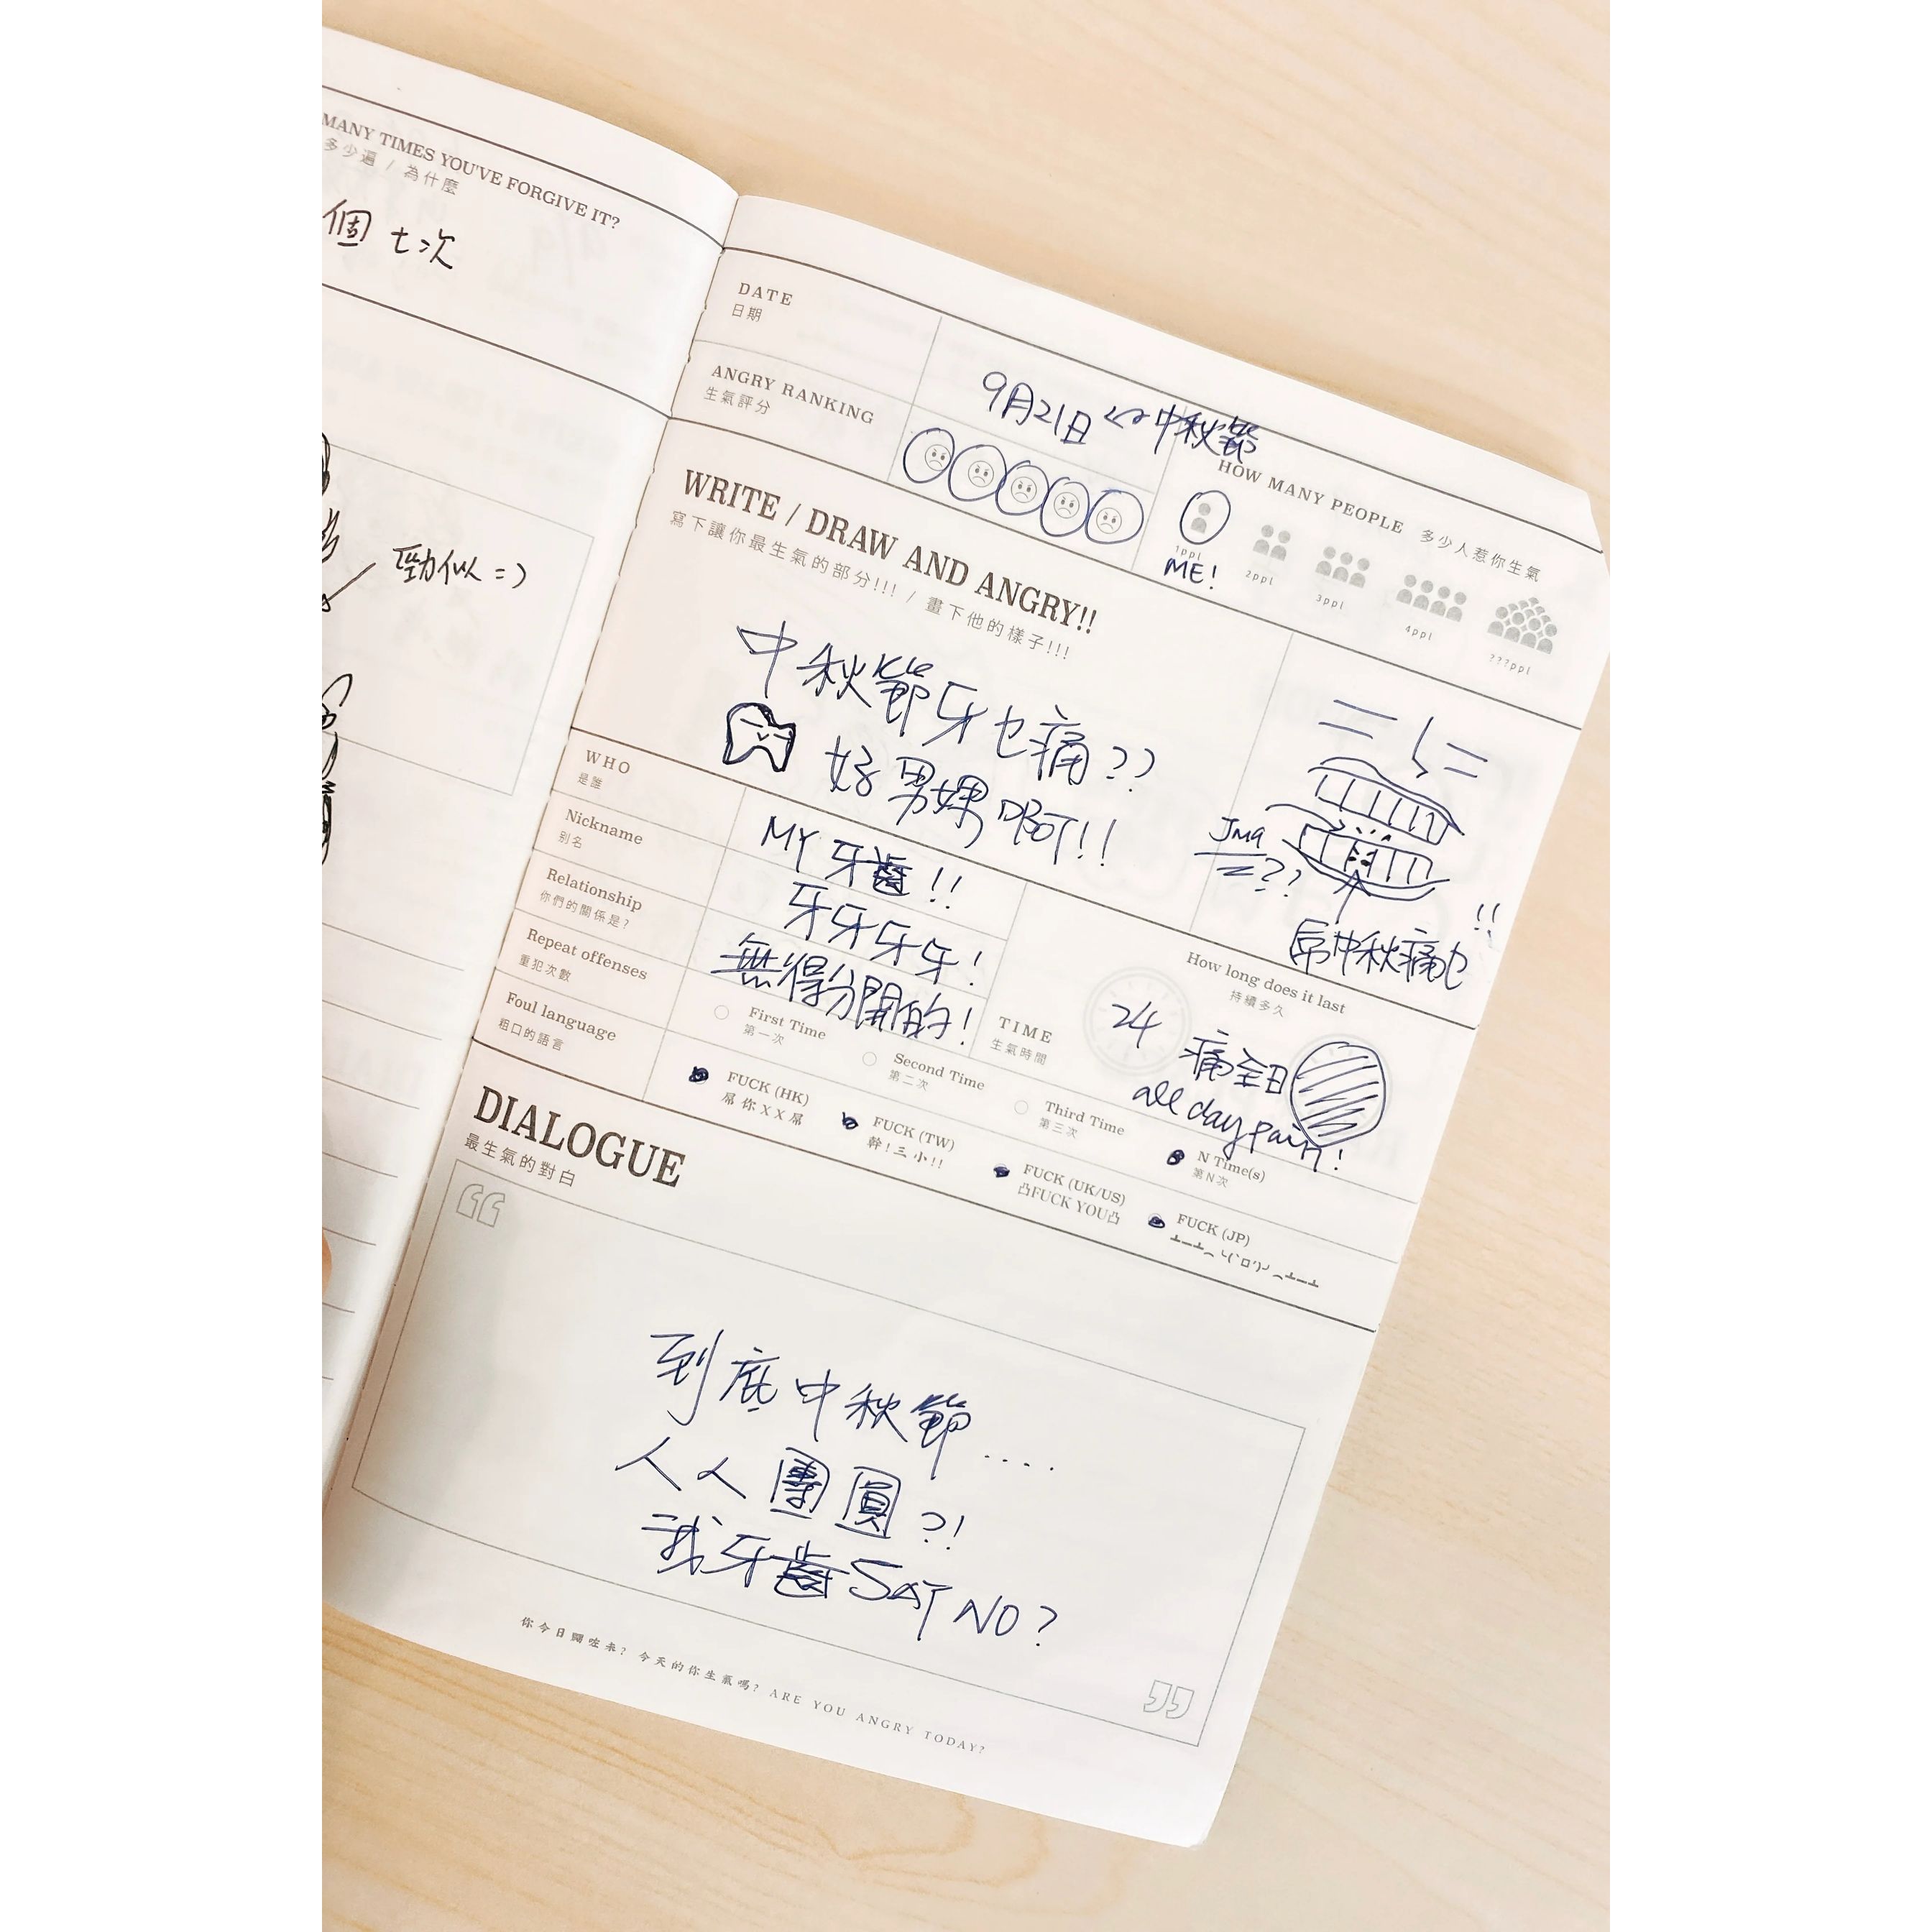 MANY TIMES YOU'VE FORGIVE IT?
多少遍 / 為什麼
個七次
勁似 =)
DATE
日期
9月21日 <-> 中秋節
ANGRY RANKING
生氣評分
HOW MANY PEOPLE 多少人惹你生氣
1ppl
ME!
2ppl
3ppl
4ppl
???ppl
WRITE / DRAW AND ANGRY!!
寫下讓你最生氣的部分!!! / 畫下他的樣子!!!
中秋節牙乜痛??
!!
??
中秋痛乜
!!
WHO
是誰
MY 牙齒!!
Nickname
別名
牙牙牙牙!
Relationship
你們的關係是?
無得分開的!
TIME
生氣時間
How long does it last
持續多久
24 痛全日
all day pain!
Repeat offenses
重犯次數
First Time
第一次
Second Time
第二次
Third Time
第三次
N Time(s)
第N次
Foul language
粗口的語言
FUCK (HK)
屌你XX屌
FUCK (TW)
幹!三小!!
FUCK (UK/US)
凸FUCK YOU凸
FUCK (JP)
DIALOGUE
最生氣的對白
到底中秋節....
人人團圓?!
我牙齒SAY NO?
你今日鬧咗未? 今天的你生氣嗎? ARE YOU ANGRY TODAY?